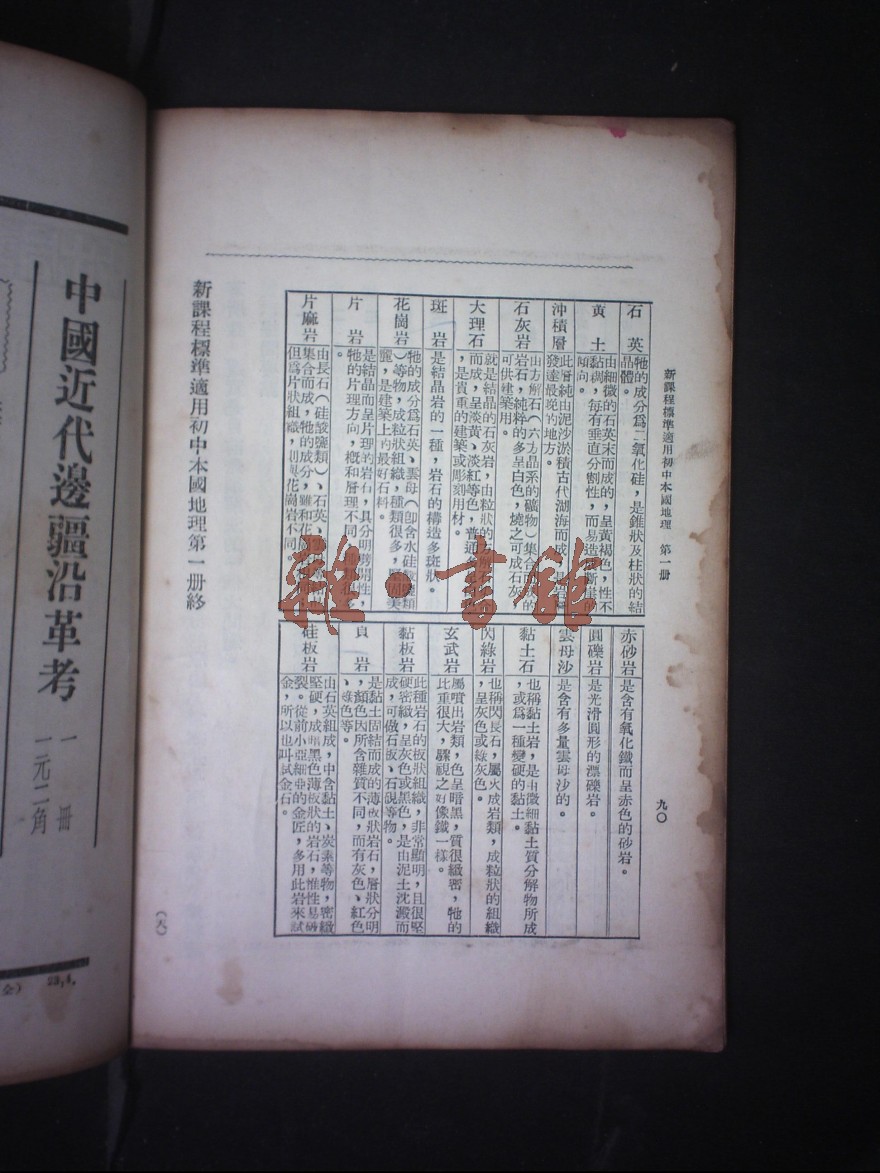 新課程標準適用初中本國地理　第一册
九〇
石　英
牠的成分爲二氧化硅，是錐狀及柱狀的結
晶體。
黄　土
由細微的石英末而成的，呈黃褐色，性不
黏稠，每有垂直分割性，而易造成斷崖的
傾向。
沖積層
此層純由泥沙淤積古代湖海而成
發達最晚的地方。
石灰岩
由方解石（六方晶系的礦物）集合
岩石，純粹的多呈白色，燒之可成石灰
可供建築用。
大理石
就是結晶的石灰岩，由粒狀的方解石
而成，呈淡黃、淡紅等色，普通
，是貴重的建築或彫刻用材。
斑　岩
是結晶岩的一種，岩石的構造多斑狀。
花崗岩
牠的成分爲石英、雲母（卽含水硅酸鹽類
）等物，成粒狀組織，種類很多，堅固美
麗，是建築上的最好石料。
片　岩
是結晶而呈片理的岩石，具分明劈開性，
牠的片理方向，槪和層理不同
。
片麻岩
由長石（硅酸鹽類）、石英、
集合而成，牠的成分，雖和花
但爲片狀組織，則與花崗岩不同。
赤砂岩
是含有氧化鐵而呈赤色的砂岩。
圓礫岩
是光滑圓形的漂礫岩。
雲母沙
是含有多量雲母沙的。
黏土石
也稱黏土岩，是由微細黏土質分解物所成
，或爲一種變硬的黏土。
閃綠岩
也稱閃長石，屬火成岩類，成粒狀的組織
，呈灰色或綠灰色。
玄武岩
屬噴出岩類，色呈暗黑，質很緻密，牠的
比重很大，驟視之好像鐵一樣。
黏板岩
此種岩石的板狀組織，非常顯明，且很堅
硬密緻，呈灰色或黑色，是由泥土沈澱而
成，可做石板、石硯等物。
頁　岩
是黏土固結而成的薄板狀岩石，層狀分明
，顏色因所含雜質不同，而有灰色、紅色
、綠色等。
硅板岩
由石英組成，中含黏土、炭素等物，密緻
堅硬，成暗黑色薄板狀的岩石，惟性易破
裂。從前小亞細亞的金匠，多用此岩來試
金，所以也叫試金石。
新課程標準適用初中本國地理第一册終
（六）
雜·書館
中國近代邊疆沿革考
一册
一元二角
（全）　23,4,